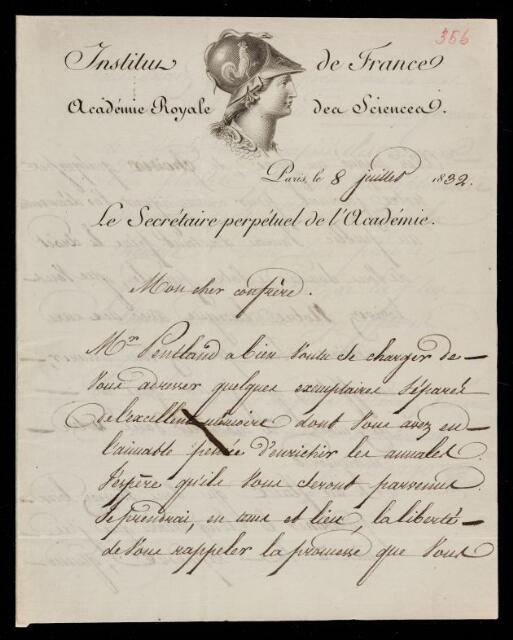 356
Institut de France
Académie Royale des Sciences.
Paris, le 8 juillet 1832.
Le Secrétaire perpétuel de l'Académie.
Mon cher confrère.
Mr Pentland a bien voulu se charger de
vous adresser quelques exemplaires séparés
de l'excellent mémoire dont vous avez eu
l'aimable pensée d'enrichir les annales.
J'espère qu'ils vous seront parvenus.
Je prendrai, en tems et lieu, la liberté
de vous rappeler la promesse que vous